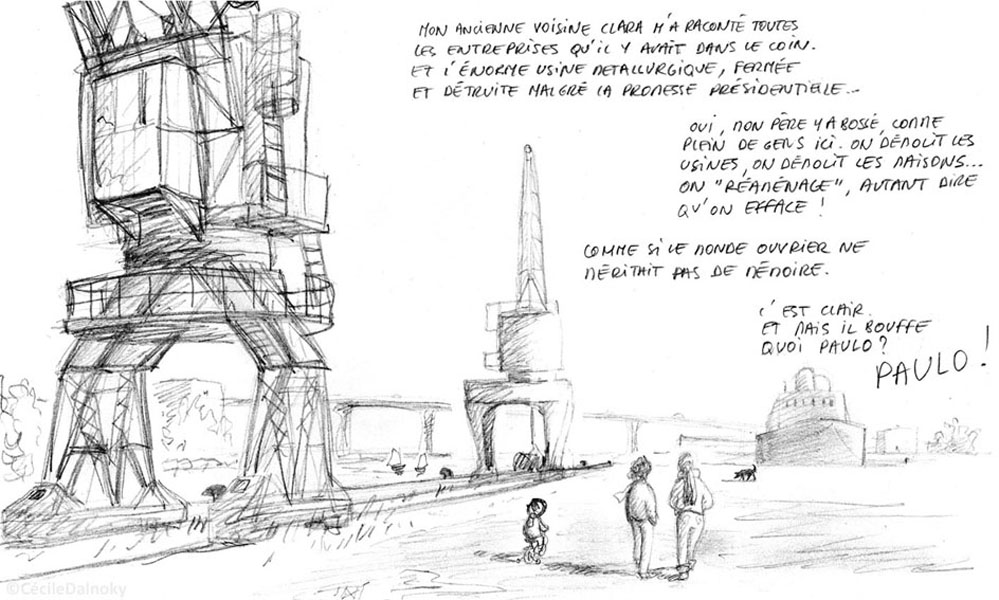 MON ANCIENNE VOISINE CLARA M'A RACONTÉ TOUTES
LES ENTREPRISES QU'IL Y AVAIT DANS LE COIN.
ET L'ÉNORME USINE METALLURGIQUE, FERMÉE
ET DÉTRUITE MALGRÉ LA PROMESSE PRÉSIDENTIELLE...
OUI, MON PÈRE Y A BOSSÉ, COMME
PLEIN DE GENS ICI. ON DÉMOLIT LES
USINES, ON DÉMOLIT LES MAISONS...
ON "RÉAMÉNAGE", AUTANT DIRE
QU'ON EFFACE !
COMME SI LE MONDE OUVRIER NE
MÉRITAIT PAS DE MÉMOIRE.
C'EST CLAIR.
ET MAIS IL BOUFFE
QUOI PAULO ?
PAULO !
©CécileDalnoky